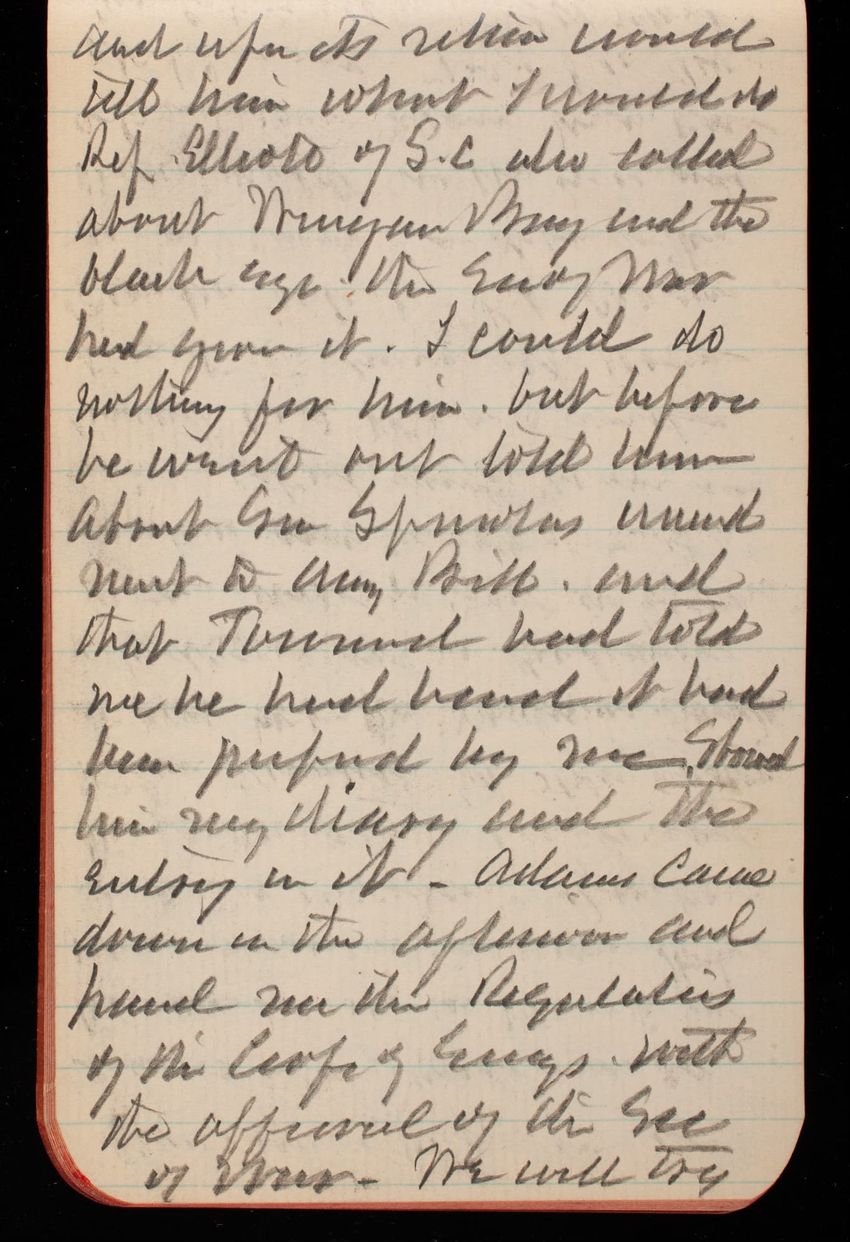 and upon its return would
tell him what I would do
Rep. Elliott of S.C also called
about Morgan Bray and the
black eye the Sec of War
had given it. I could do
nothing for him. but before
he went out told him
about Gen Spinolas amend
ment to Army Bill. and
that Townsend had told
me he had heard it had
been prepared by me Showed
him my diary and the
entry in it - Adams Came
down in the afternoon and
hand me the Regulations
of the Corps of Engrs. with
the approval of the Sec
of War - We will try